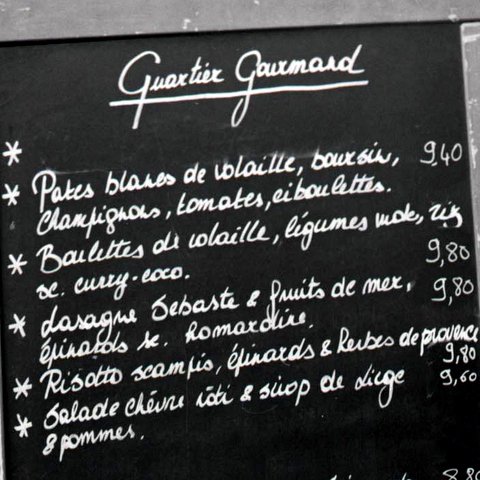 Quartier Gourmand
*
* Pates blanes de volaille, boursin, 9,40
Champignons, tomates, ciboulettes.
* Boulettes de volaille, légumes wok, riz
sc. curry-coco. 9,80
* Lasagne Sebaste & fruits de mer, 9,80
épinards sc. homardine.
* Risotto scampis, épinards & herbes de provence
9,80
* Salade chèvre rôti & sirop de Liège 9,60
& pommes.
8,80